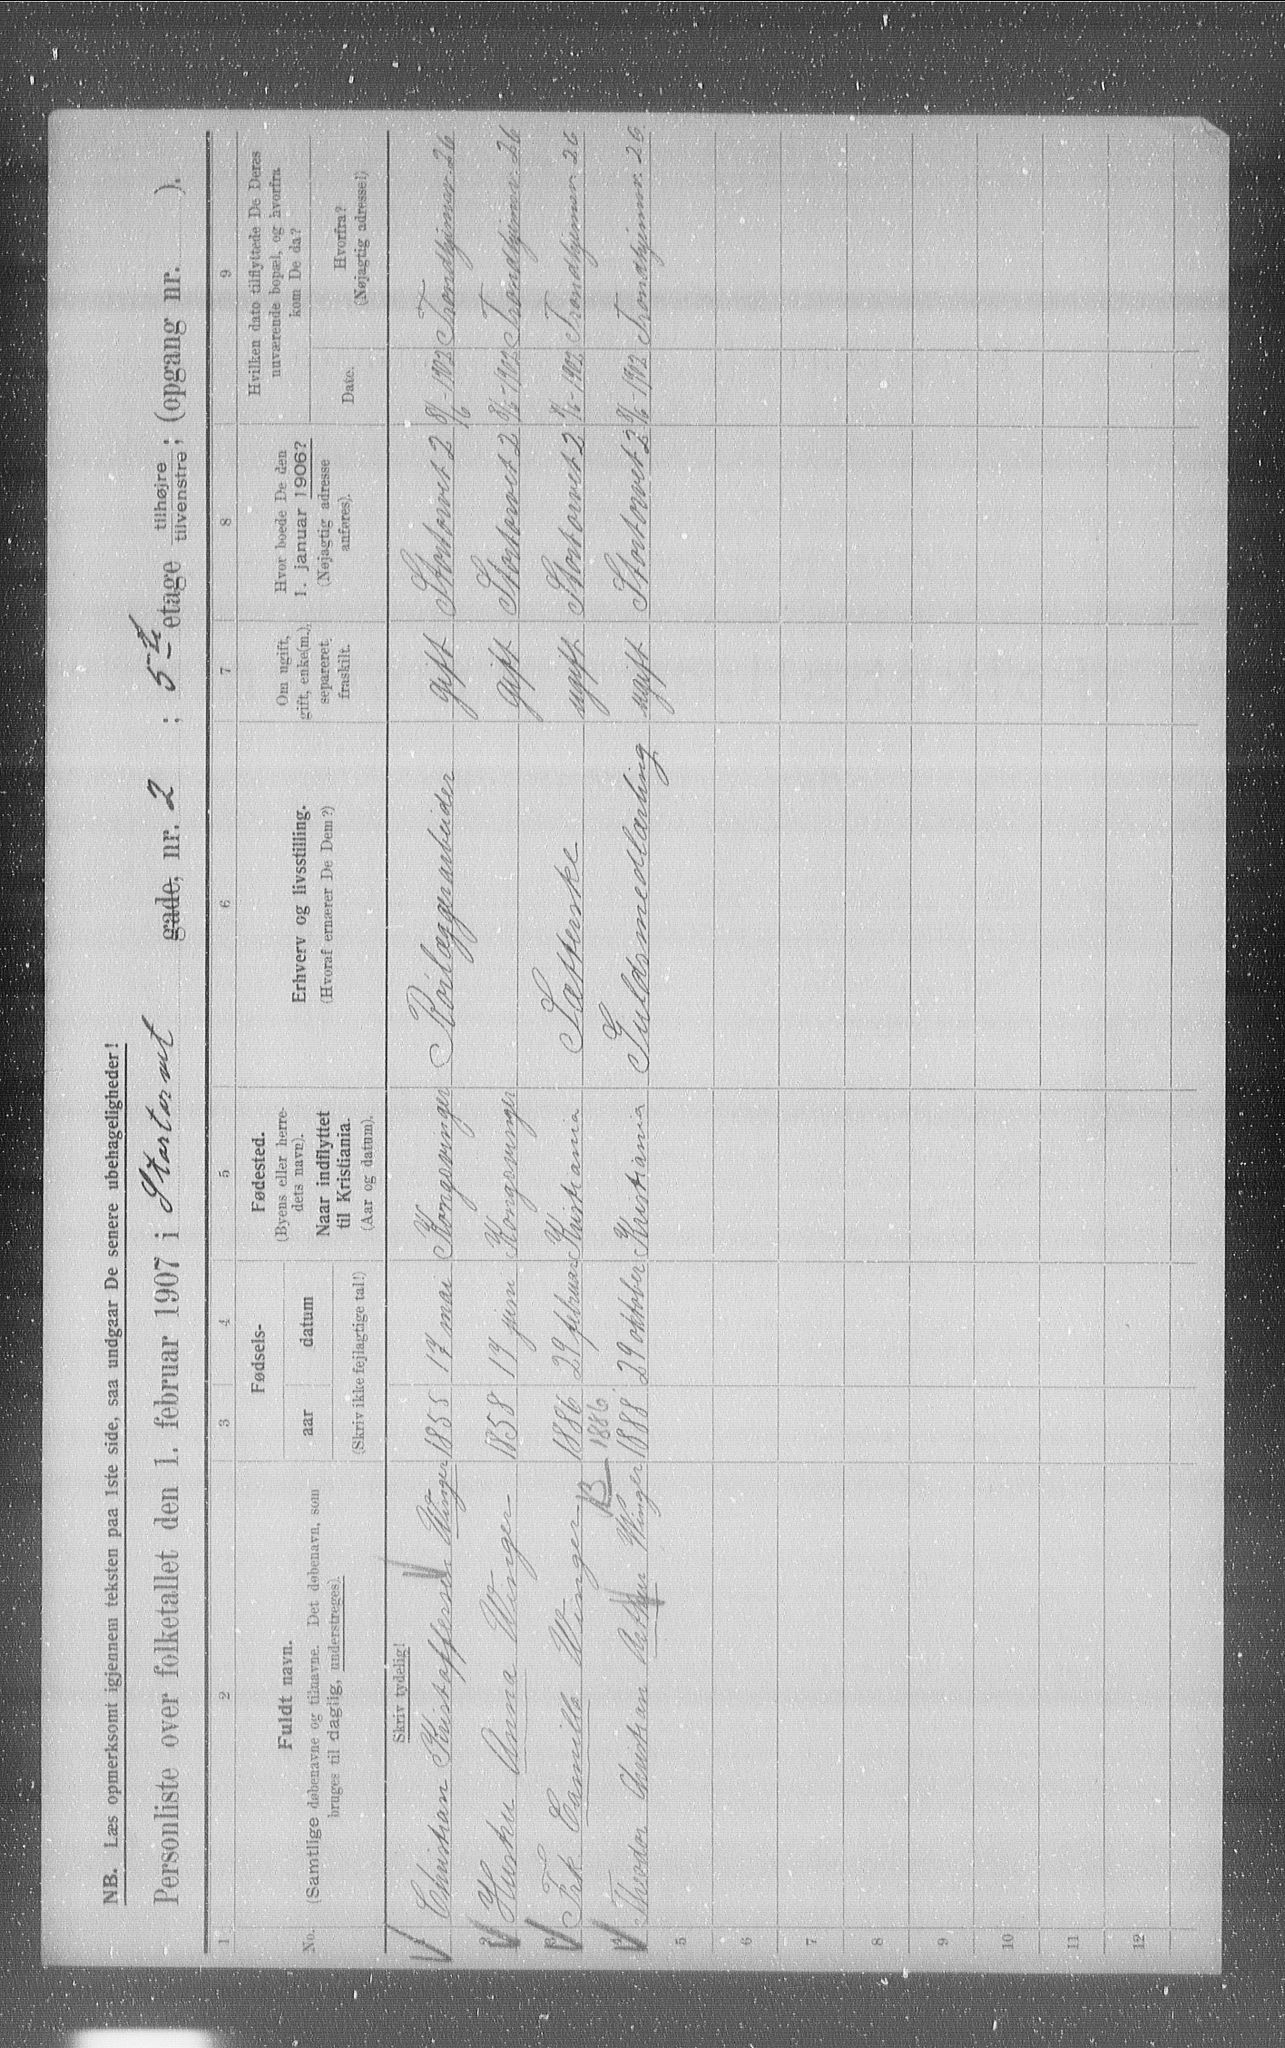 NB. Læs opmerksomt igjennem teksten paa 1ste side, saa undgaar De senere ubehageligheder!
Personliste over folketallet den 1. februar 1907 i Stortorvet gade, nr. 2 ; 5te etage tilhøjre tilvenstre; (opgang nr. ).
1 2 3 4 5 6 7 8 9
No. Fuldt navn. (Samtlige døbenavne og tilnavne. Det døbenavn, som bruges til daglig, understreges).
Fødsels- aar datum (Skriv ikke fejlagtige tal!)
Fødested. (Byens eller herredets navn). Naar indflyttet til Kristiania. (Aar og datum).
Erhverv og livsstilling. (Hvoraf ernærer De Dem?)
Om ugift, gift, enke(m.), separeret, fraskilt.
Hvor boede De den 1. januar 1906? (Nøjagtig adresse anføres).
Hvilken dato tilflyttede De Deres nuværende bopæl, og hvorfra kom De da?
Dato. Hvorfra? (Nøjagtig adresse!)
Skriv tydelig!
1 Christian Kristoffersen Winger 1855 17 mai Kongsvinger Rörlæggerarbeider gift Stortorvet 2 8/6-1902 Trondhjemsv. 26
2 Hustru Anna Winger 1858 17 juni Kongsvinger gift Stortorvet 2 8/6-1902 Trondhjemsv. 26
3 Frk Camilla Winger 1886 29 februar Kristiania Sætterske ugift Stortorvet 2 8/6-1902 Trondhjemsv. 26
B 1886
4 Theodor Christian Arthur Winger 1888 29 oktober Kristiania Guldsmedlærling ugift Stortorvet 2 8/6-1902 Trondhjemsv. 26
5
6
7
8
9
10
11
12